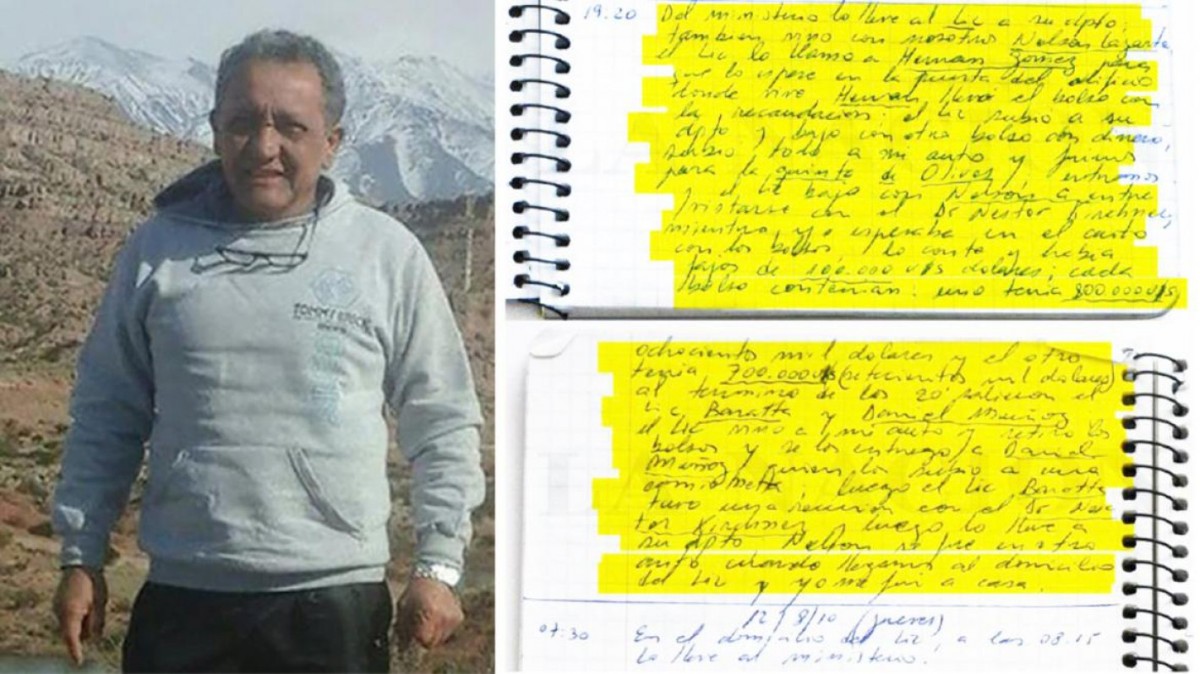 TOMMY
19:20 Del ministerio lo lleve al Lic a su dpto,
tambien vino con nosotros Nelson Lazarte
el Lic lo llamo a Hernan Gomez para
que lo espere en la puerta del edificio
donde vive Hernan llevó el bolso con
la recaudacion; el Lic subio a su
dpto y bajo con otro bolso con dinero,
subio todo a mi auto y fuimos
para la quinta de Olivos entramos
y el Lic bajo con Nelson a entre
vistarse con el Dr Nestor Kirchner,
mientras yo esperaba en el auto
con los bolsos lo conte y habia
fajos de 100.000 U$S dolares; cada
bolso contenian: uno tenia 800.000 U$S,
ochocientos mil dolares y el otro
tenia 700.000 U$S (setecientos mil dolares)
al termino de los 20' salieron el
Lic Baratta y Daniel Muñoz
el Lic vino a mi auto y retiro los
bolsos y se los entrego a Daniel
Muñoz, quien los subio a una
camioneta, luego el Lic Baratta
tuvo una reunion con el Dr Nes
tor Kirchner y luego lo lleve a
su dpto Nelson se fue en otro
auto cuando llegamos al domicilio
del Lic y yo me fui a casa.
12/8/10 (jueves)
07:30 En el domicilio del Lic, a las 08.15
lo lleve al ministerio.